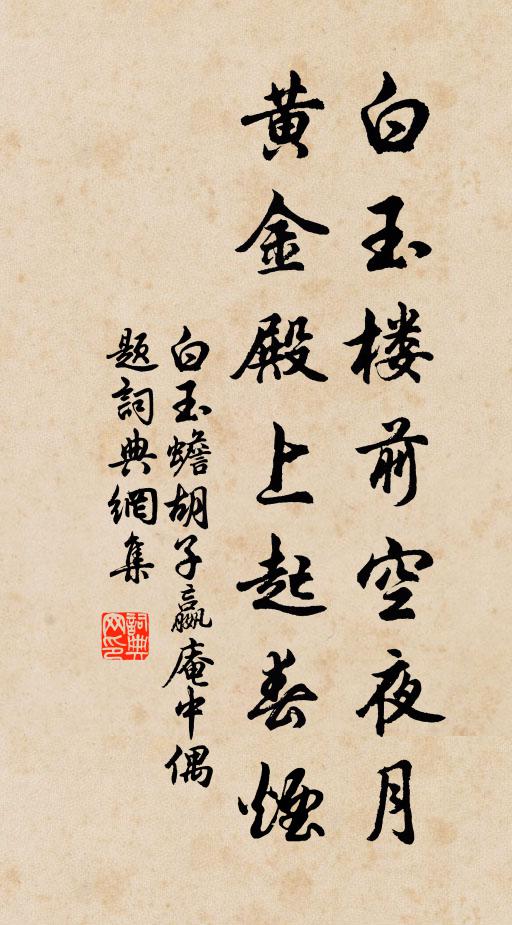 白玉楼前空夜月
黄金殿上起春煙
白玉蟾胡子嬴庵中偶
题詞典網集
詞典
网印